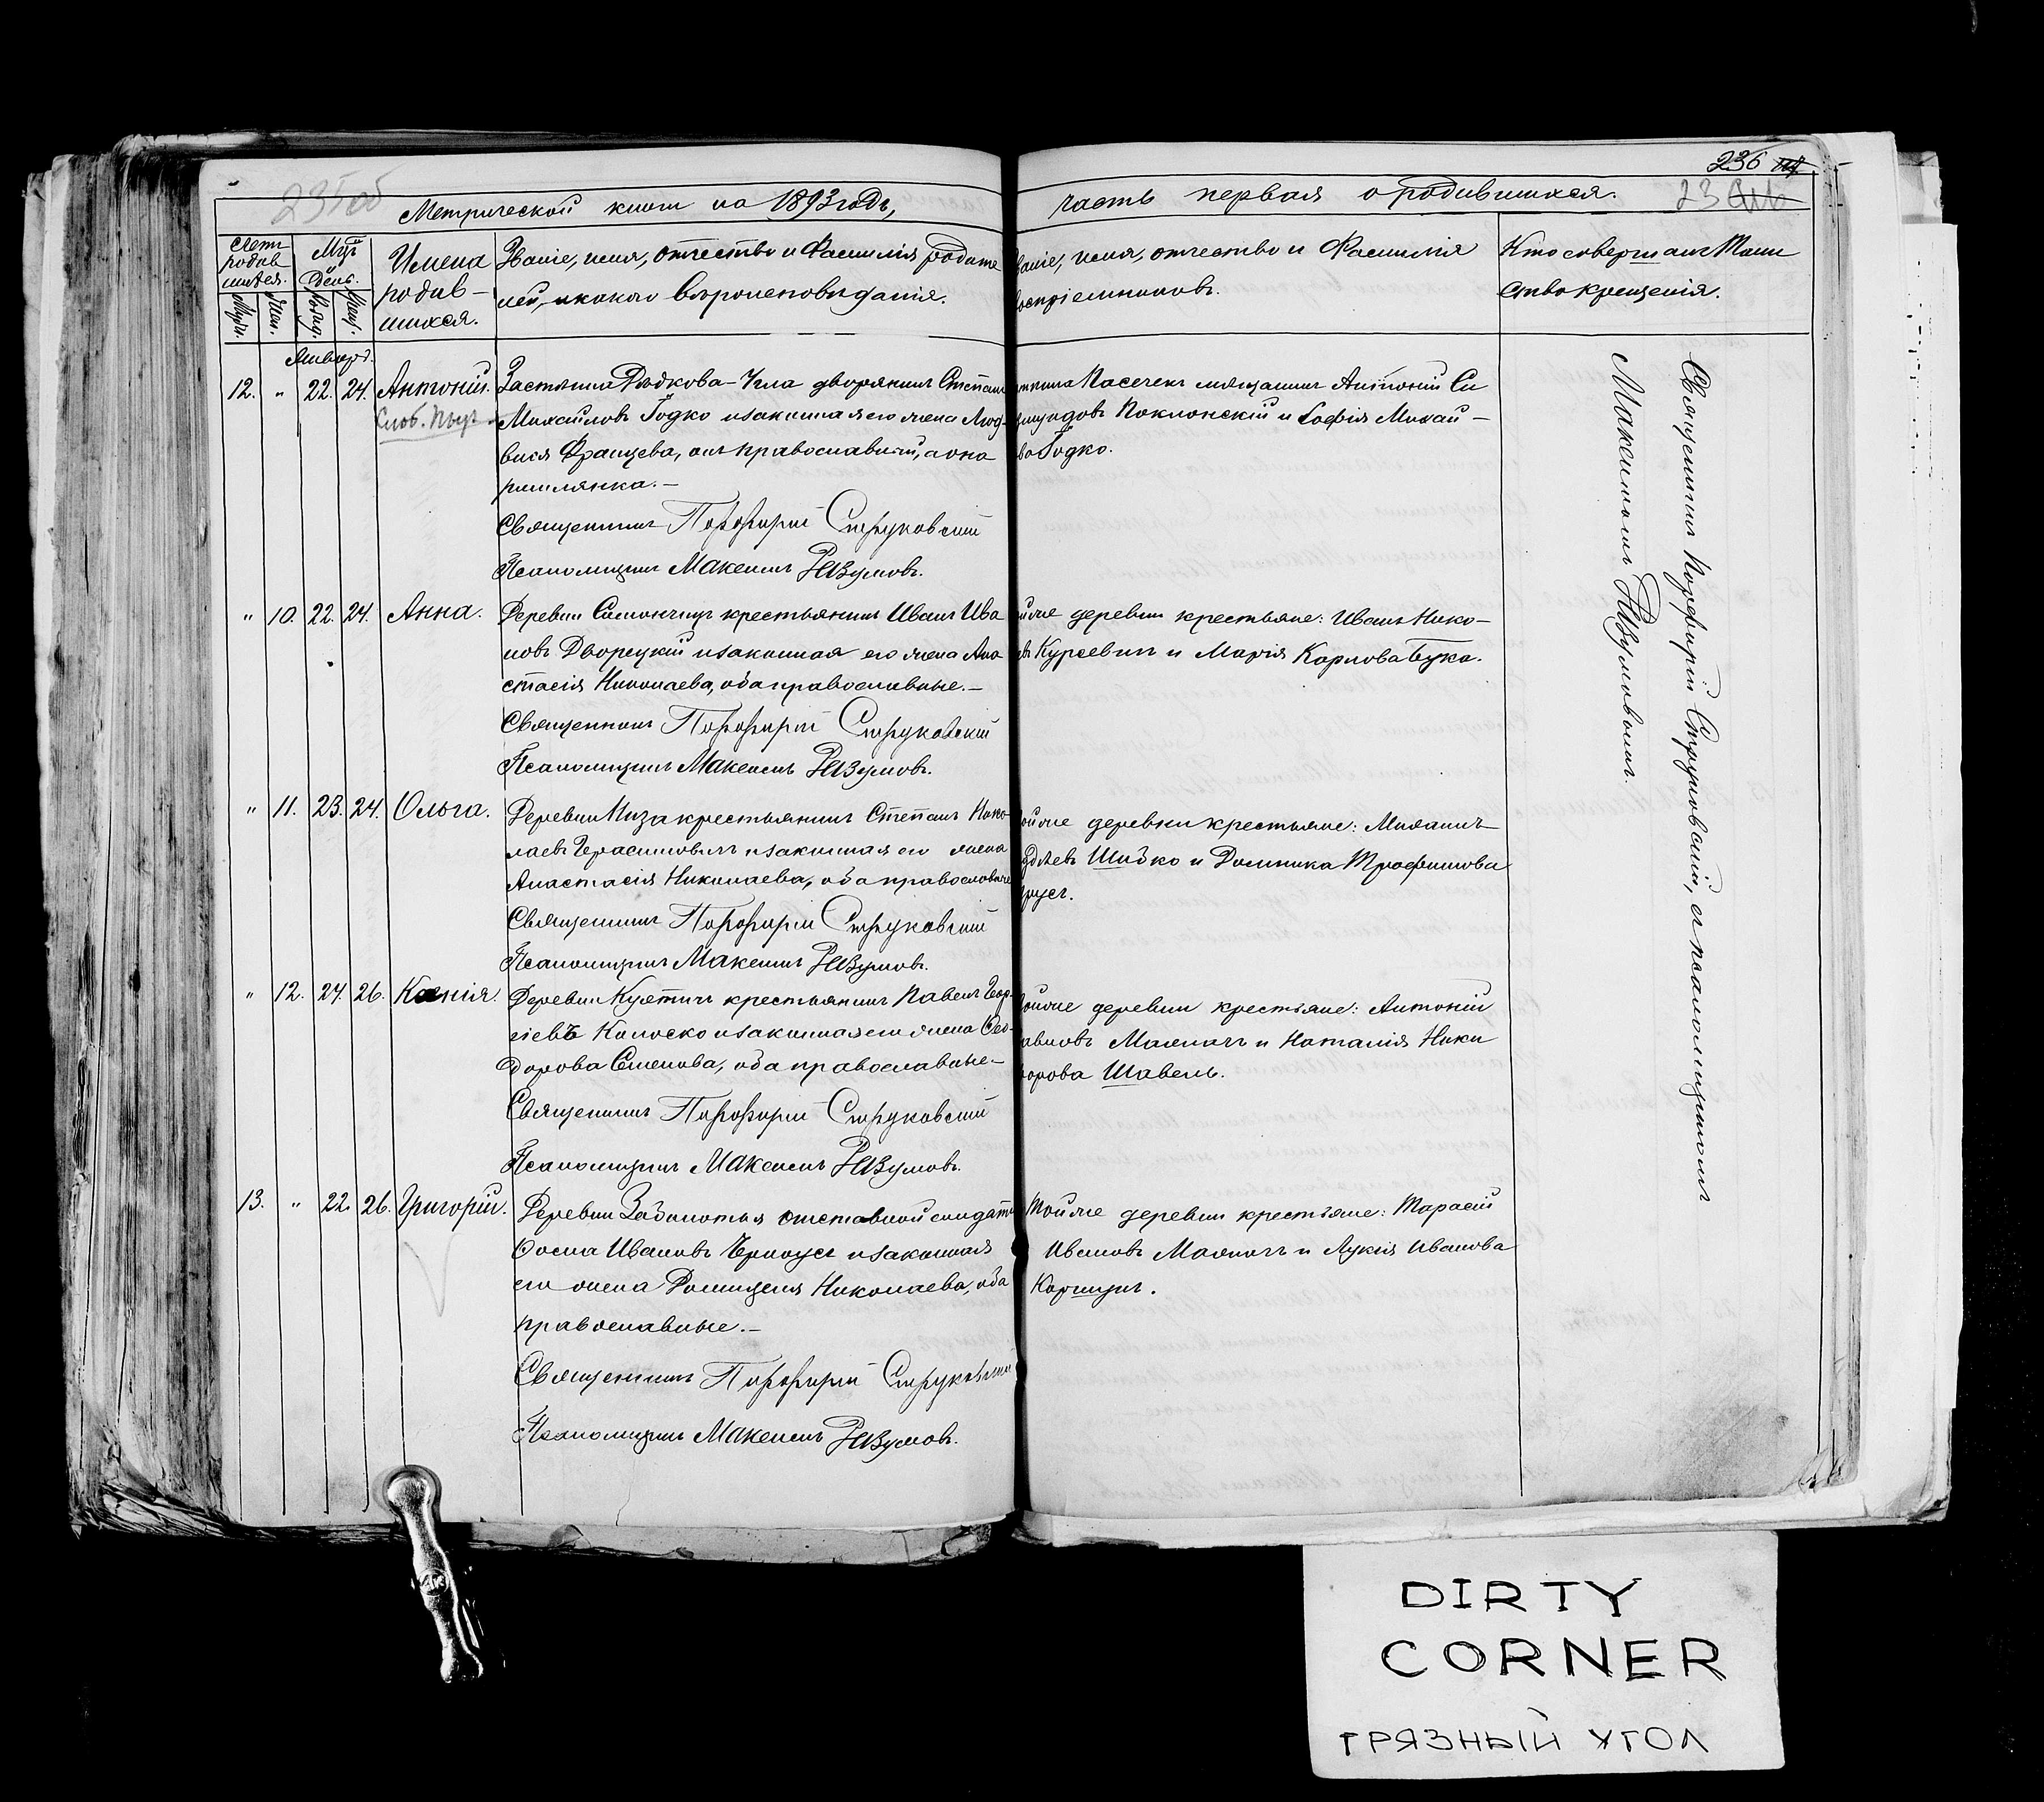 236
235об
Метрической книги на 1893 годъ,
часть первая о родившихся.
Счетъ родив шихся.
Муж.
Жен.
Мѣс. День.
Рожд.
Крещ.
Имена родив-
шихся.
Званіе, имя, отчество и фамилія родите
лей, и какого вѣроисповѣданія.
Званіе, имя, отчество и Фамилія
воспріемниковъ.
Кто совершалъ Таин
ство крещенія.
Январь.
12. " 22. 24. Антоній. Застянка Рѣдкова-Угла дворянинъ Степанъ
Михайловъ Годко и законная его жена Люд-
вися Францева, онъ православный, а она
римлянка.-
Священникъ Порфирій Струковскій
Псаломщикъ Максимъ Разумовъ.
Пасечекъ мѣщанинъ Антоній Си
гмундовъ Поклонскій и Софія Михай-
ва Годко.
" 10. 22. 24. Анна. Деревни Симончицъ крестьянинъ Иванъ Ива
новъ Дворецкій и законная его жена Ана
стасія Николаева, оба православные.-
Священникъ Порфирій Струковскій
Псаломщикъ Максимъ Разумовъ.
деревни крестьяне: Иванъ Нико-
въ Курсевичъ и Марія Карлова Бука.
" 11. 23. 24. Ольга. Деревни Низа крестьянинъ Степанъ Нико-
лаевъ Герасимовичъ и законная его жена
Анастасія Николаева, оба православные
Священникъ Порфирій Струковскій
Псаломщикъ Максимъ Разумовъ.
деревни крестьяне: Михаилъ
Шидко и Домника Трофимова
" 12. 24. 26. Ксенія. Деревни крестьянинъ Павелъ Геор-
гіевъ Колоско и законная его жена Ѳео-
дорова Семенова, оба православные-
Священникъ Порфирій Струковскій
Псаломщикъ Максимъ Разумовъ.
деревни крестьяне: Антоній
Махначъ и Наталія Ники
форова Шавель.
13. " 22. 26. Григорій. Деревни Заболотья отставной солдатъ
Ѳома Ивановъ Черноусъ и законная
его жена Домицеля Николаева, оба
православные.-
Священникъ Порфирій Струковскій
Псаломщикъ Максимъ Разумовъ.
Той же деревни крестьяне: Тарасій
Ивановъ Махначъ и Лукія Иванова
Коршукъ.
Священникъ Порфирій Струковскій, съ псаломщикомъ
Максимомъ Разумовымъ.
DIRTY
CORNER
ГРЯЗНЫЙ УГОЛ